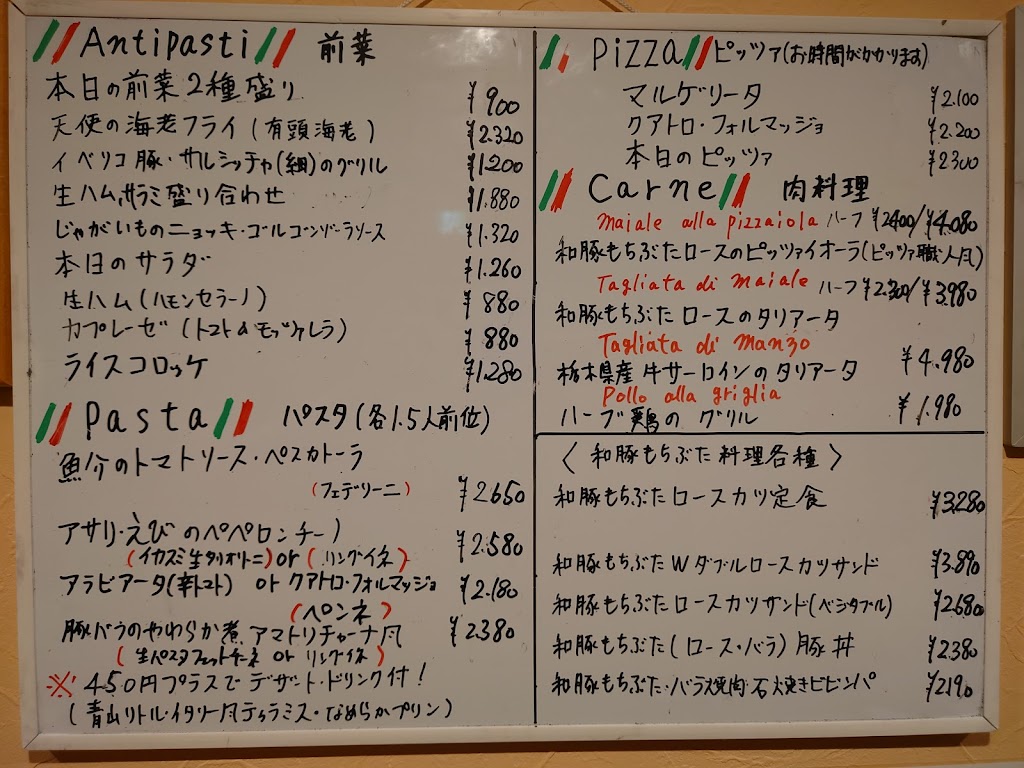 Antipasti 前菜
本日の前菜2種盛り ¥900
天使の海老フライ(有頭海老) ¥2.320
イベリコ豚・サルシッチャ(細)のグリル ¥1200
生ハム,サラミ盛り合わせ ¥1.880
じゃがいものニョッキ・ゴルゴンゾーラソース ¥1.320
本日のサラダ ¥1.260
生ハム(ハモンセラーノ) ¥880
カプレーゼ(トマト&モッツァレラ) ¥880
ライスコロッケ ¥1.280
Pasta パスタ(各1.5人前位)
魚介のトマトソース・ペスカトーラ
(フェデリーニ) ¥2650
アサリ・えびのペペロンチーノ ¥2.580
(イカスミ生タリオリーニ)or(リングイネ)
アラビアータ(辛トマト) orクアトロ・フォルマッジョ ¥2.180
(ペンネ)
豚バラのやわらか煮 アマトリチャーナ風 ¥2.380
(生パスタフェットチーネ or リングイネ)
※450円プラスでデザート・ドリンク付!
(青山リトル・イタリー風ティラミス・なめらかプリン)
Pizza ピッツァ(お時間がかかります)
マルゲリータ ¥2.100
クアトロ・フォルマッジョ ¥2.200
本日のピッツァ ¥2300
Carne 肉料理
Maiale alla pizzaiola ハーフ ¥2400/¥4.080
和豚もちぶたロースのピッツァイオーラ(ピッツァ職人風)
Tagliata di maiale ハーフ¥2.300/¥3.980
和豚もちぶたロースのタリアータ
Tagliata di manzo
栃木県産牛サーロインのタリアータ ¥4.980
Pollo alla griglia
ハーブ鶏のグリル ¥1.980
〈和豚もちぶた料理各種〉
和豚もちぶたロースカツ定食 ¥3.280
和豚もちぶたWダブルロースカツサンド ¥3.890
和豚もちぶたロースカツサンド(ベジタブル) ¥2680
和豚もちぶた(ロース・バラ)豚丼 ¥2.380
和豚もちぶた・バラ焼肉・石焼きビビンバ ¥2190